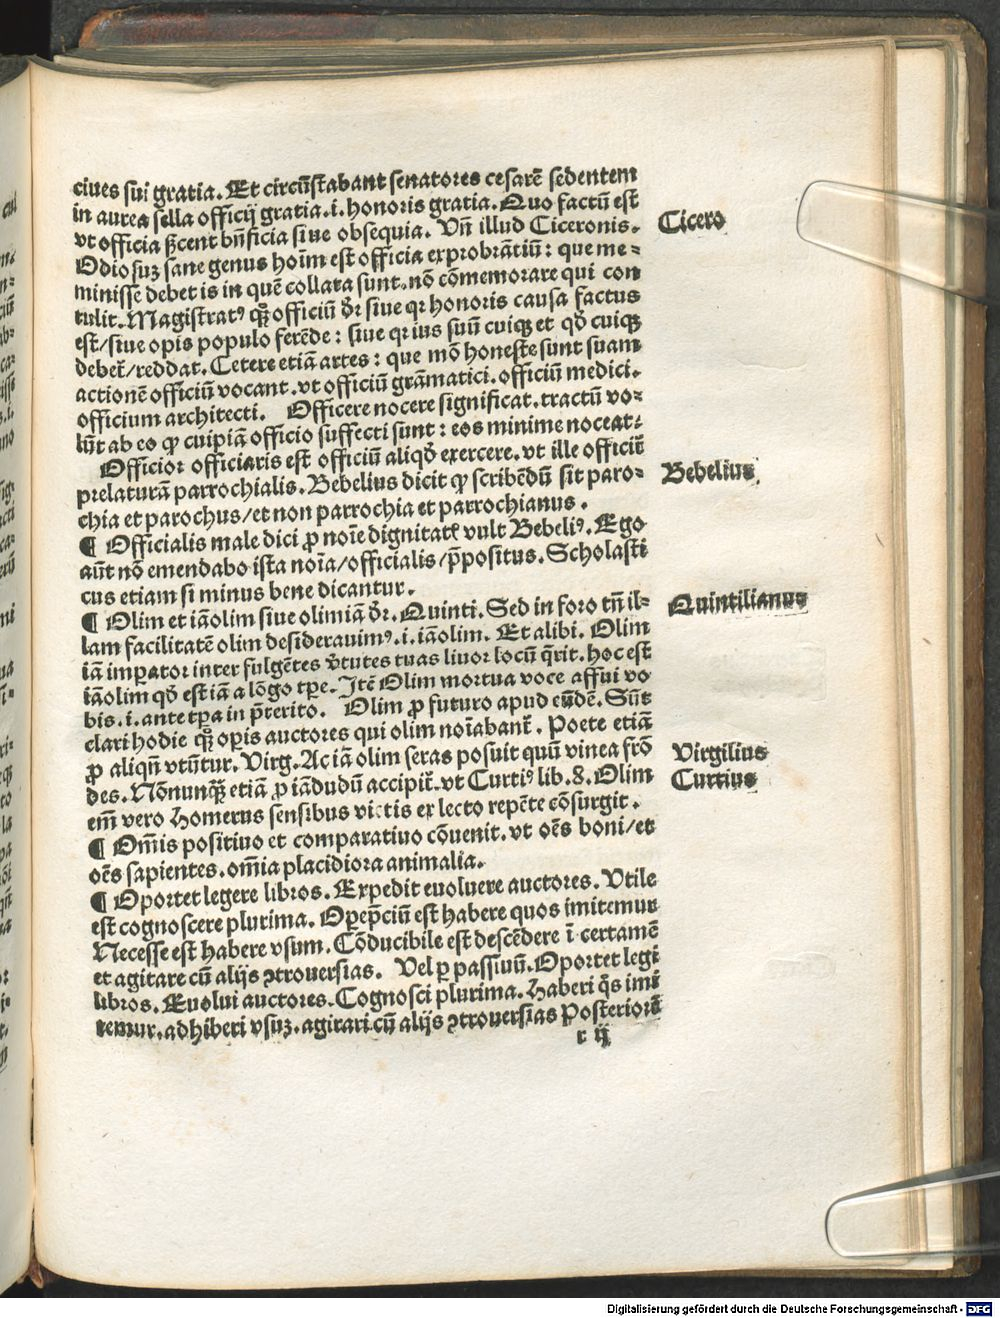 ciues sui gratia. Et circūstabant senatores cesarē sedentem
in aurea sella officij gratia .i. honoris gratia. Quo factū est
vt officia ꝑ̄cent bn̄ficia siue obsequia. Vn̄ illud Ciceronis.
Cicero
Odiosuꝫ sane genus hoīm est officia exprobrātiū: que me-
minisse debet is in quē collata sunt. nō cōmemorare qui con
tulit. Magistratꝰ qꝫ officiū dr̄ siue qꝛ honoris causa factus
est/siue opis populo ferēde: siue qꝛ ius suū cuiqꝫ et qđ cuiqꝫ
debet̄/reddat. Cetere etiā artes: que mō honeste sunt suam
actionē officiū vocant. vt officiū grāmatici. officiū medici.
officium architecti. Officere nocere significat. tractū vo-
lūt ab eo ꝙ cuipiā officio suffecti sunt: eos minime noceat:
Officior officiaris est officiū aliqđ exercere. vt ille officiť
prelaturā parrochialis. Bebelius dicit ꝙ scribēdū sit paro-
Bebelius.
chia et parochus/et non parrochia et parrochianus.
¶ Officialis male dici ꝓ noīe dignitatꝭ vult Bebeliꝰ. Ego
aūt nō emendabo ista noīa/officialis/p̄positus. Scholasti
cus etiam si minus bene dicantur.
¶ Olim et iāolim siue olimiā dr̄. Quinti. Sed in foro tn̄ il-
Quintilianus
lam facilitatē olim desiderauimꝰ .i. iāolim. Et alibi. Olim
iā imꝑator inter fulgētes v̄tutes tuas liuor locū q̄rit. hoc est
iāolim qđ est iā a lōgo tꝑe. Itē Olim mortua voce affui vo
bis .i. ante tꝑa in p̄terito. Olim ꝓ futuro apud eūdē. Sūt
clari hodie qꝫ oꝑis auctores qui olim noīabant̄. Poete etiā
ꝓ aliqn̄ vtūtur. Virg. Ac iā olim seras posuit quū vinea frō
Virgilius
des. Nōnunqꝫ etiā ꝓ iādudū accipit̄. vt Curtiꝰ lib. 8. Olim
Curtius
em̄ vero Homerus sensibus victis ex lecto repēte cōsurgit.
¶ Om̄is positiuo et comparatiuo cōuenit. vt oēs boni/et
oēs sapientes. om̄ia placidiora animalia.
¶ Oportet legere libros. Expedit euoluere auctores. Vtile
est cognoscere plurima. Oꝑep̄ciū est habere quos imitemur
Necesse est habere vsum. Cōducibile est descēdere ī certamē
et agitare cū alijs ꝯtrouersias. Vel ꝑ passiuū. Oportet legi
libros. Euolui auctores. Cognosci plurima. Haberi q̄s imi
temur. adhiberi vsuꝫ. agitari cū alijs ꝯtrouersias Posteriorē
r ij
Digitalisierung gefördert durch die Deutsche Forschungsgemeinschaft - DFG